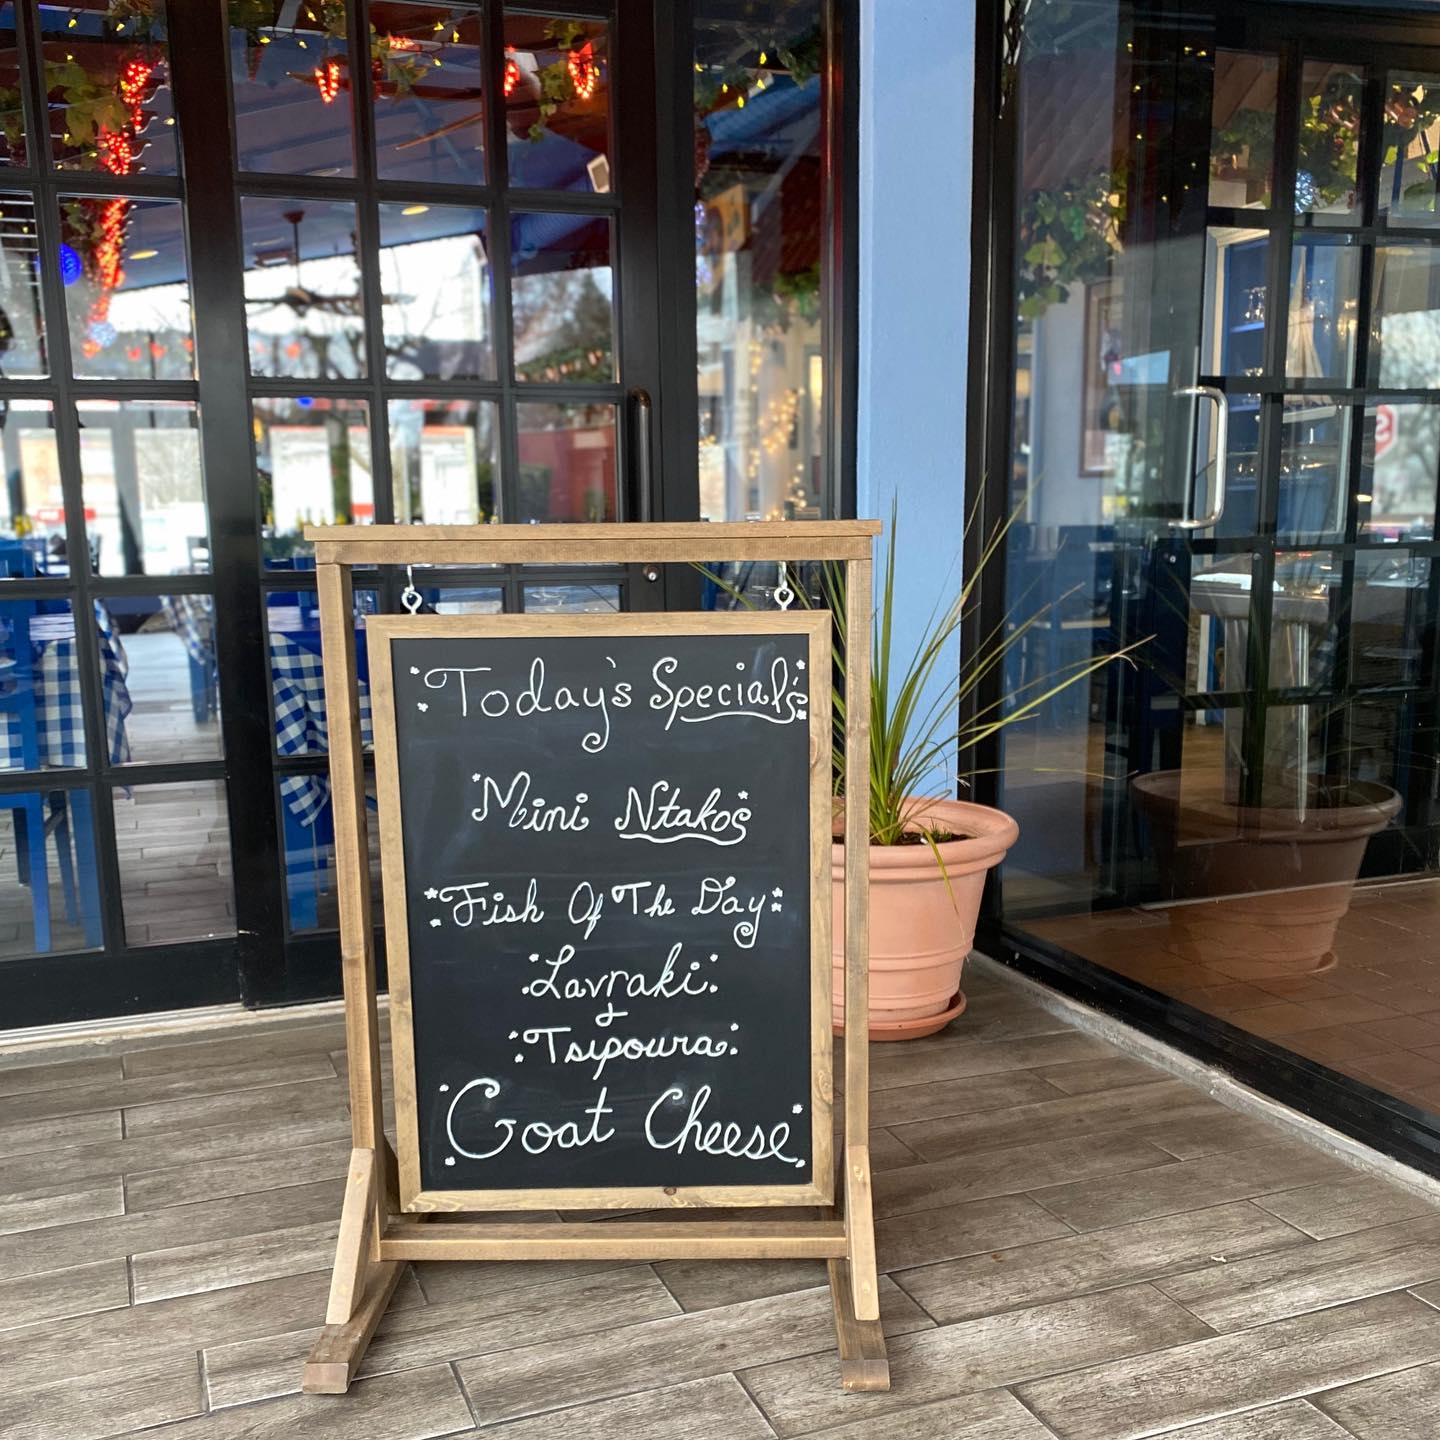 Today's Special's
Mini Ntakos
Fish Of The Day
Lavraki
&
Tsipoura
Goat Cheese